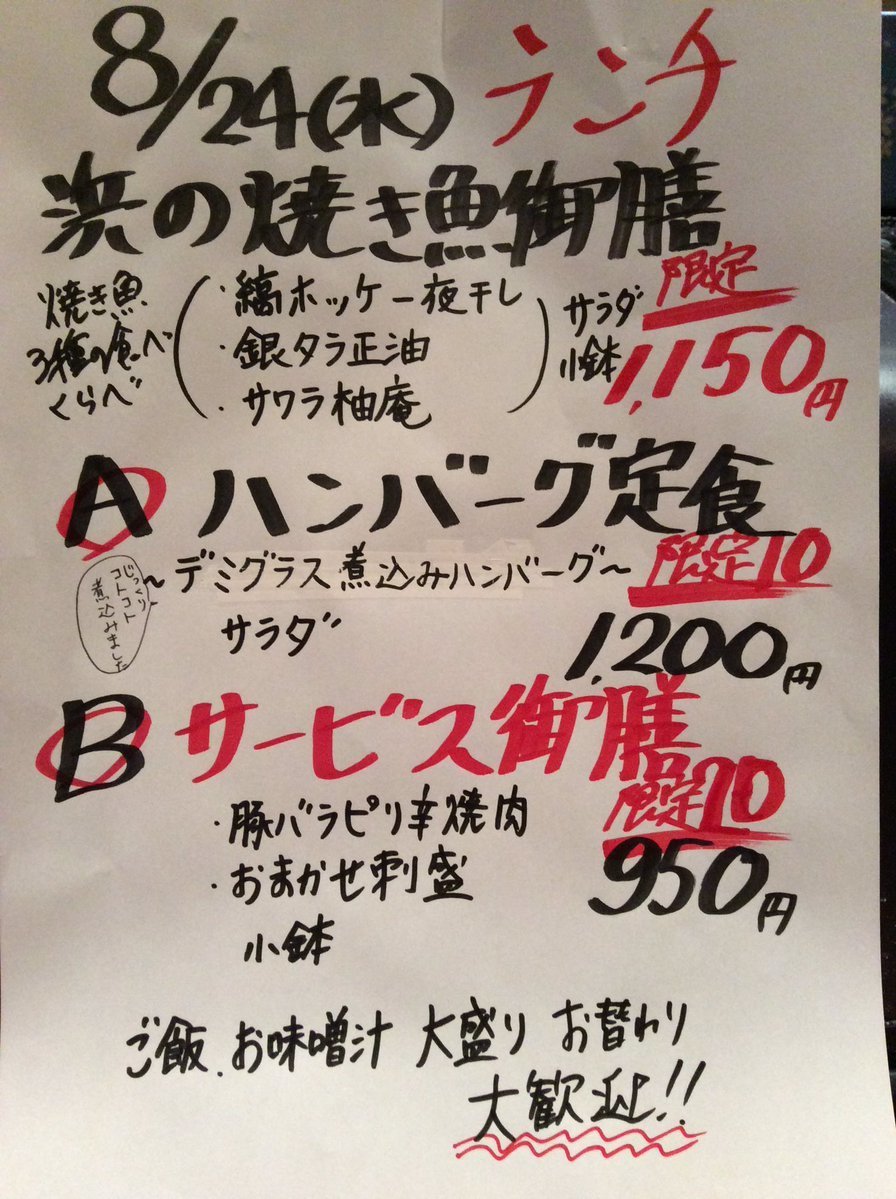 8/24(水) ランチ
浜の焼き魚御膳
限定
焼き魚
3種の食べ
くらべ
・縞ホッケ一夜干し
・銀タラ正油
・サワラ柚庵
サラダ
小鉢
1,150円
A ハンバーグ定食
限定10
～デミグラス煮込みハンバーグ～
じっくり
コトコト
煮込みました
サラダ
1,200円
B サービス御膳
限定20
・豚バラピリ辛焼肉
・おまかせ刺盛
小鉢
950円
ご飯、お味噌汁 大盛り お替わり
大歓迎!!